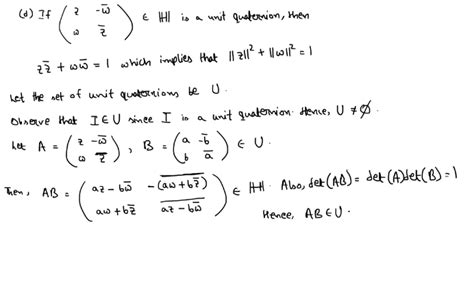 (d) If ( z -w̄ ; w z̄ ) ∈ ℍ is a unit quaternion, then
z z̄ + w w̄ = 1 which implies that ||z||² + ||w||² = 1
Let the set of unit quaternions be U.
Observe that I ∈ U since I is a unit quaternion. Hence, U ≠ ∅.
Let A = ( z -w̄ ; w z̄ ), B = ( a -b̄ ; b ā ) ∈ U.
Then, AB = ( az - bw̄ -(aw + bz̄)‾ ; aw + bz̄ (az - bw̄)‾ ) ∈ ℍ. Also, det(AB) = det(A)det(B) = 1
Hence, AB ∈ U.